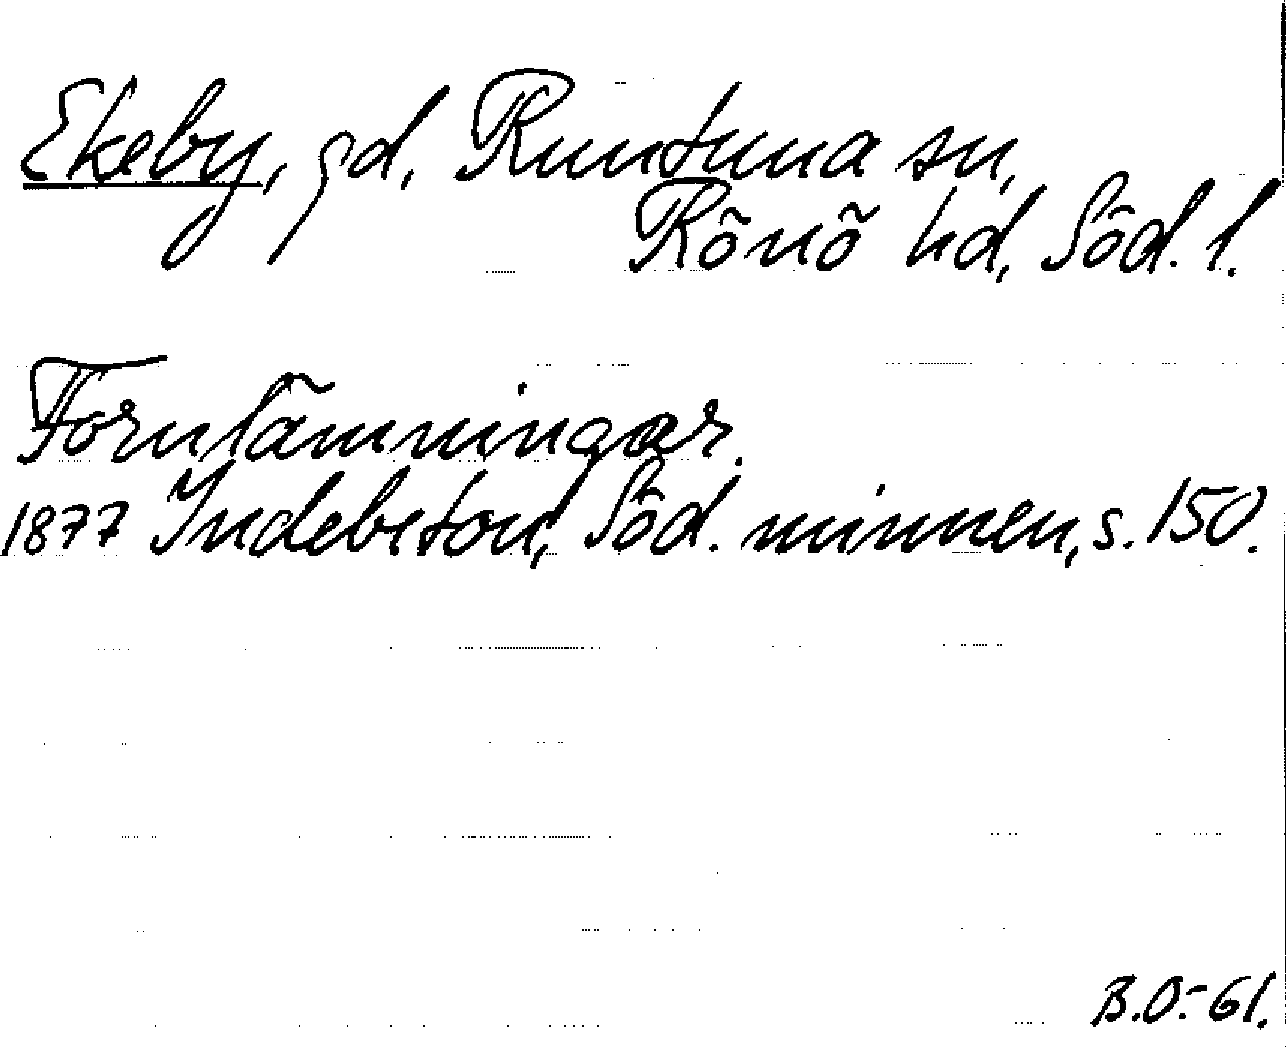 Ekeby, gd, Runtuna sn,
Rönö hd, Söd. l.
Fornlämningar.
1877 Indebetou, Söd. minnen, s. 150.
B.O.-61.